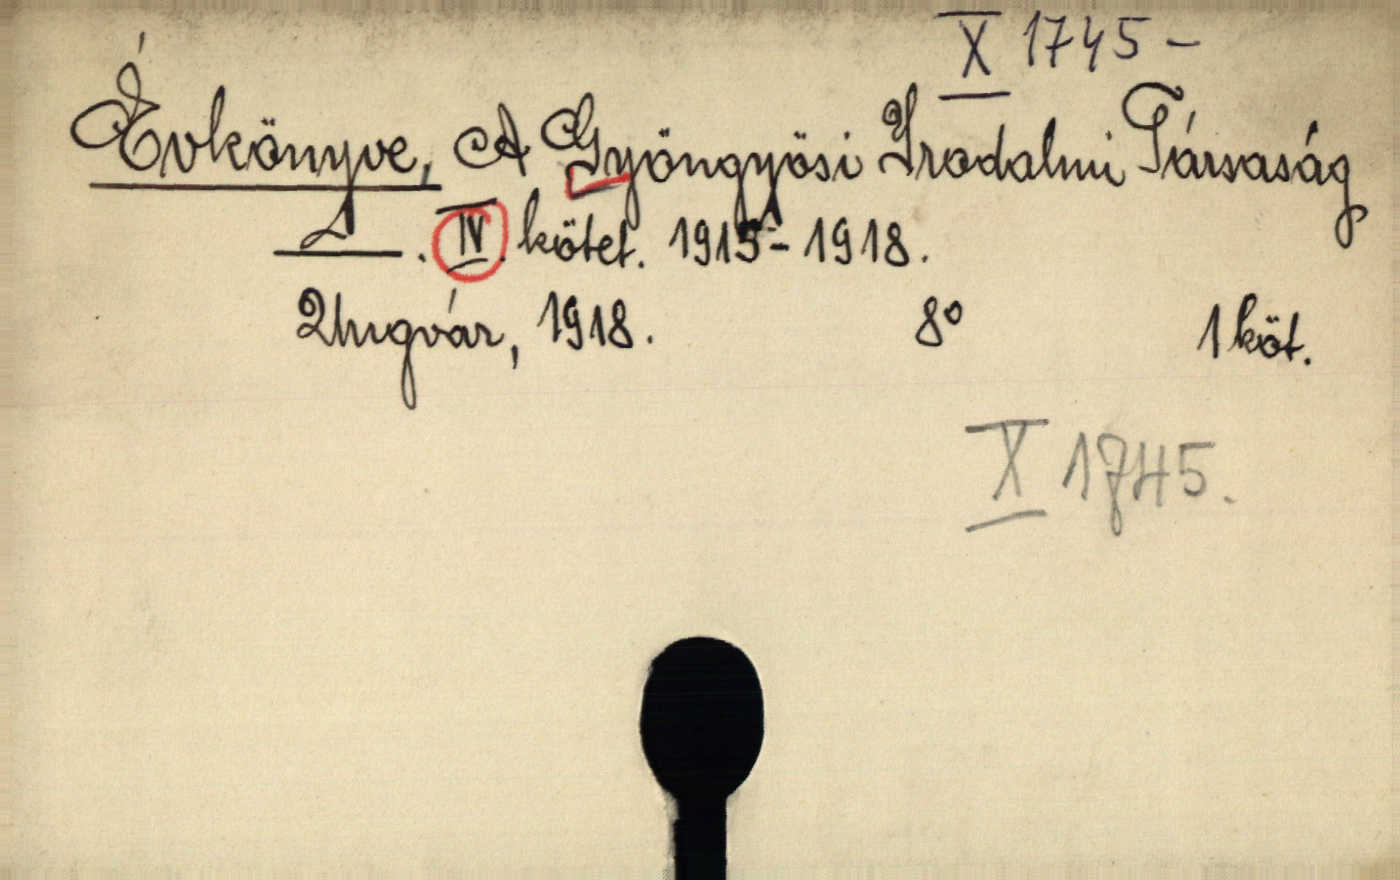 X 1745 -
Évkönyve, A Gyöngyösi Irodalmi Társaság
____ . IV. kötet. 1915 - 1918.
Ungvár, 1918. 8° 1 köt.
X 1745.